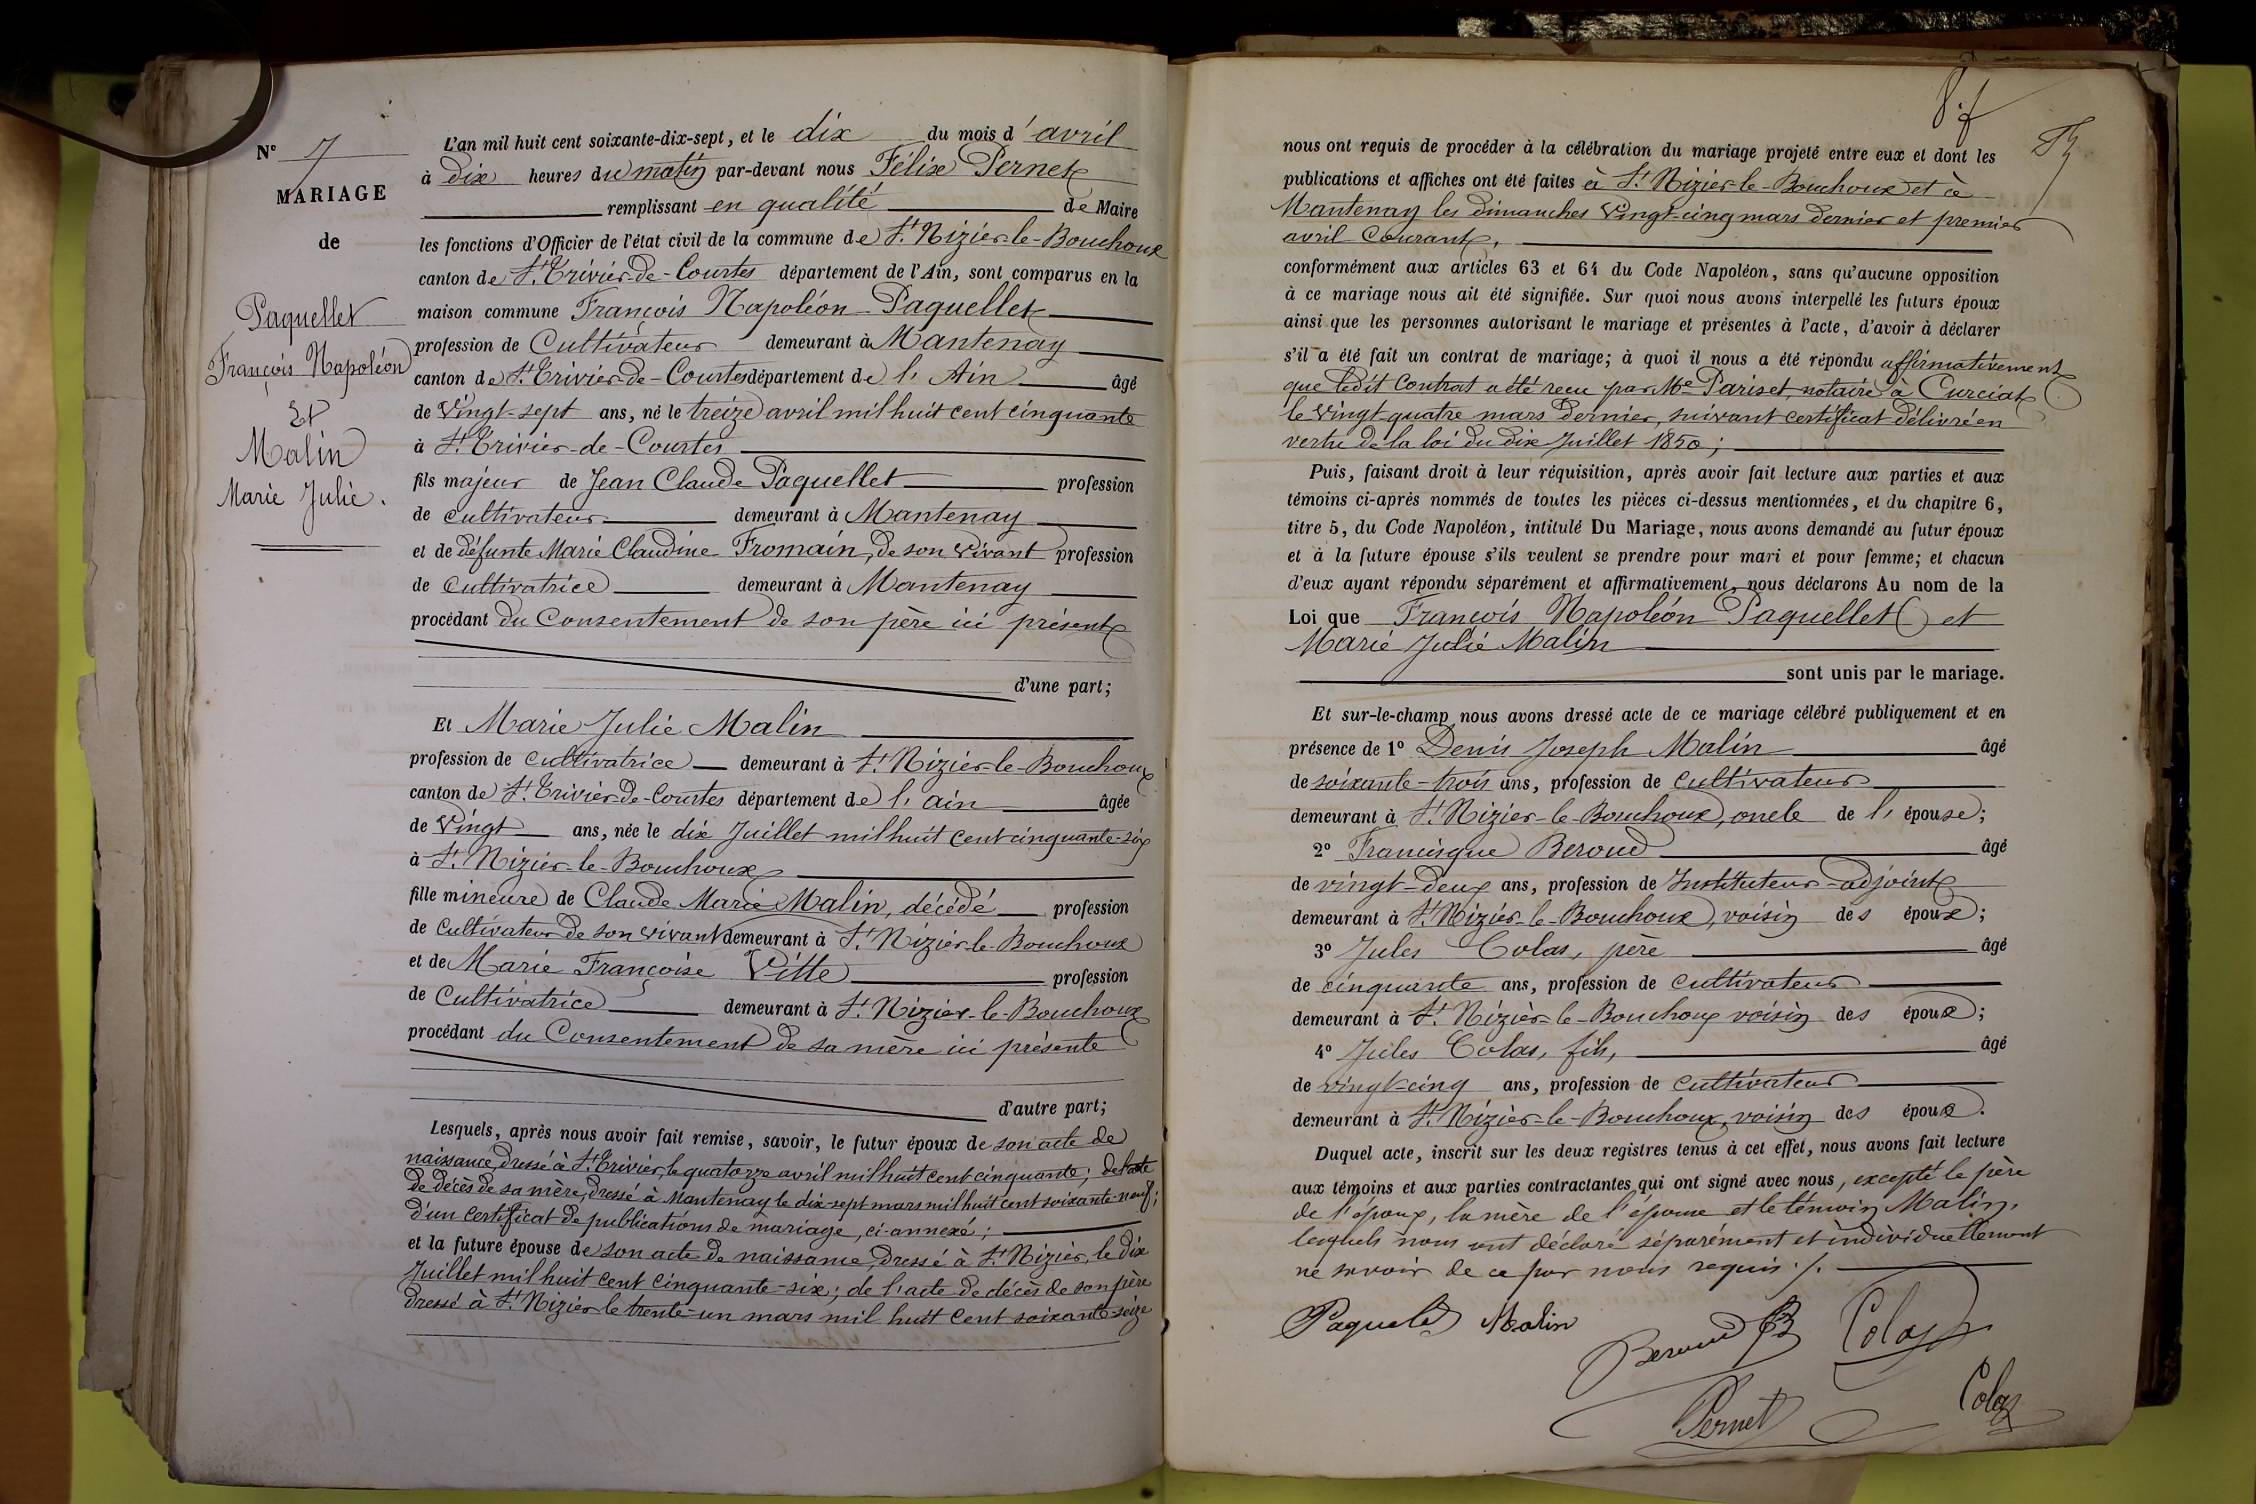 N° 7
MARIAGE
de
Paquellet
François Napoléon
Et
Malin
Marie Julie.
L'an mil huit cent soixante-dix-sept, et le dix du mois d'avril
à dix heures du matin par-devant nous Félix Pernet
remplissant en qualité de Maire
les fonctions d'Officier de l'état civil de la commune de St Nizier-le-Bouchoux
canton de St Trivier-de-Courtes département de l'Ain, sont comparus en la
maison commune François Napoléon Paquellet
profession de Cultivateur demeurant à Mantenay
canton de St Trivier-de-Courtes département de l'Ain âgé
de Vingt-sept ans, né le treize avril mil huit cent cinquante
à St Trivier-de-Courtes
fils majeur de Jean Claude Paquellet profession
de cultivateur demeurant à Mantenay
et de défunte Marie Claudine Fromain, de son vivant profession
de Cultivatrice demeurant à Mantenay
procédant du Consentement de son père ici présent
d'une part;
Et Marie Julie Malin
profession de Cultivatrice demeurant à St Nizier-le-Bouchoux
canton de St Trivier-de-Courtes département de l'ain âgée
de Vingt ans, née le dix Juillet mil huit cent cinquante-six
à St Nizier-le-Bouchoux
fille mineure de Claude Marie Malin, décédé profession
de Cultivateur de son vivant demeurant à St Nizier-le-Bouchoux
et de Marie Françoise Vitte profession
de Cultivatrice demeurant à St Nizier-le-Bouchoux
procédant du Consentement de sa mère ici présente
d'autre part;
Lesquels, après nous avoir fait remise, savoir, le futur époux de son acte de
naissance, dressé à St Trivier, le quatorze avril mil huit cent cinquante; de l'acte
de décès de sa mère, dressé à Mantenay le dix-sept mars mil huit cent soixante-neuf;
d'un certificat de publications de mariage, ci-annexé;
et la future épouse de son acte de naissance, dressé à St Nizier, le dix
Juillet mil huit cent cinquante-six; de l'acte de décès de son père
dressé à St Nizier le trente-un mars mil huit cent soixante-seize
nous ont requis de procéder à la célébration du mariage projeté entre eux et dont les
publications et affiches ont été faites à St Nizier-le-Bouchoux et à
Mantenay les dimanches Vingt-cinq mars dernier et premier
avril Courant,
conformément aux articles 63 et 64 du Code Napoléon, sans qu'aucune opposition
à ce mariage nous ait été signifiée. Sur quoi nous avons interpellé les futurs époux
ainsi que les personnes autorisant le mariage et présentes à l'acte, d'avoir à déclarer
s'il a été fait un contrat de mariage; à quoi il nous a été répondu affirmativement
que ledit Contrat a été reçu par Me Pariset, notaire à Curciat
le vingt quatre mars dernier, suivant certificat délivré en
vertu de la loi du dix Juillet 1850;
Puis, faisant droit à leur réquisition, après avoir fait lecture aux parties et aux
témoins ci-après nommés de toutes les pièces ci-dessus mentionnées, et du chapitre 6,
titre 5, du Code Napoléon, intitulé Du Mariage, nous avons demandé au futur époux
et à la future épouse s'ils veulent se prendre pour mari et pour femme; et chacun
d'eux ayant répondu séparément et affirmativement, nous déclarons Au nom de la
Loi que François Napoléon Paquellet et
Marie Julie Malin
sont unis par le mariage.
Et sur-le-champ nous avons dressé acte de ce mariage célébré publiquement et en
présence de 1° Denis Joseph Malin âgé
de soixante-trois ans, profession de cultivateur
demeurant à St Nizier-le-Bouchoux, oncle de l'épouse;
2° Francisque Beroud âgé
de vingt-deux ans, profession de Instituteur-adjoint
demeurant à St Nizier-le-Bouchoux, voisin des époux;
3° Jules Colas, père âgé
de cinquante ans, profession de cultivateur
demeurant à St Nizier-le-Bouchoux voisin des époux;
4° Jules Colas, fils, âgé
de vingt-cinq ans, profession de cultivateur
demeurant à St Nizier-le-Bouchoux, voisin des époux.
Duquel acte, inscrit sur les deux registres tenus à cet effet, nous avons fait lecture
aux témoins et aux parties contractantes qui ont signé avec nous, excepté le père
de l'époux, la mère de l'épouse et le témoin Malin,
lesquels nous ont déclaré séparément et individuellement
ne savoir de ce par nous requis ./.
Malin
Beroud
Colas
Pernet
Colas